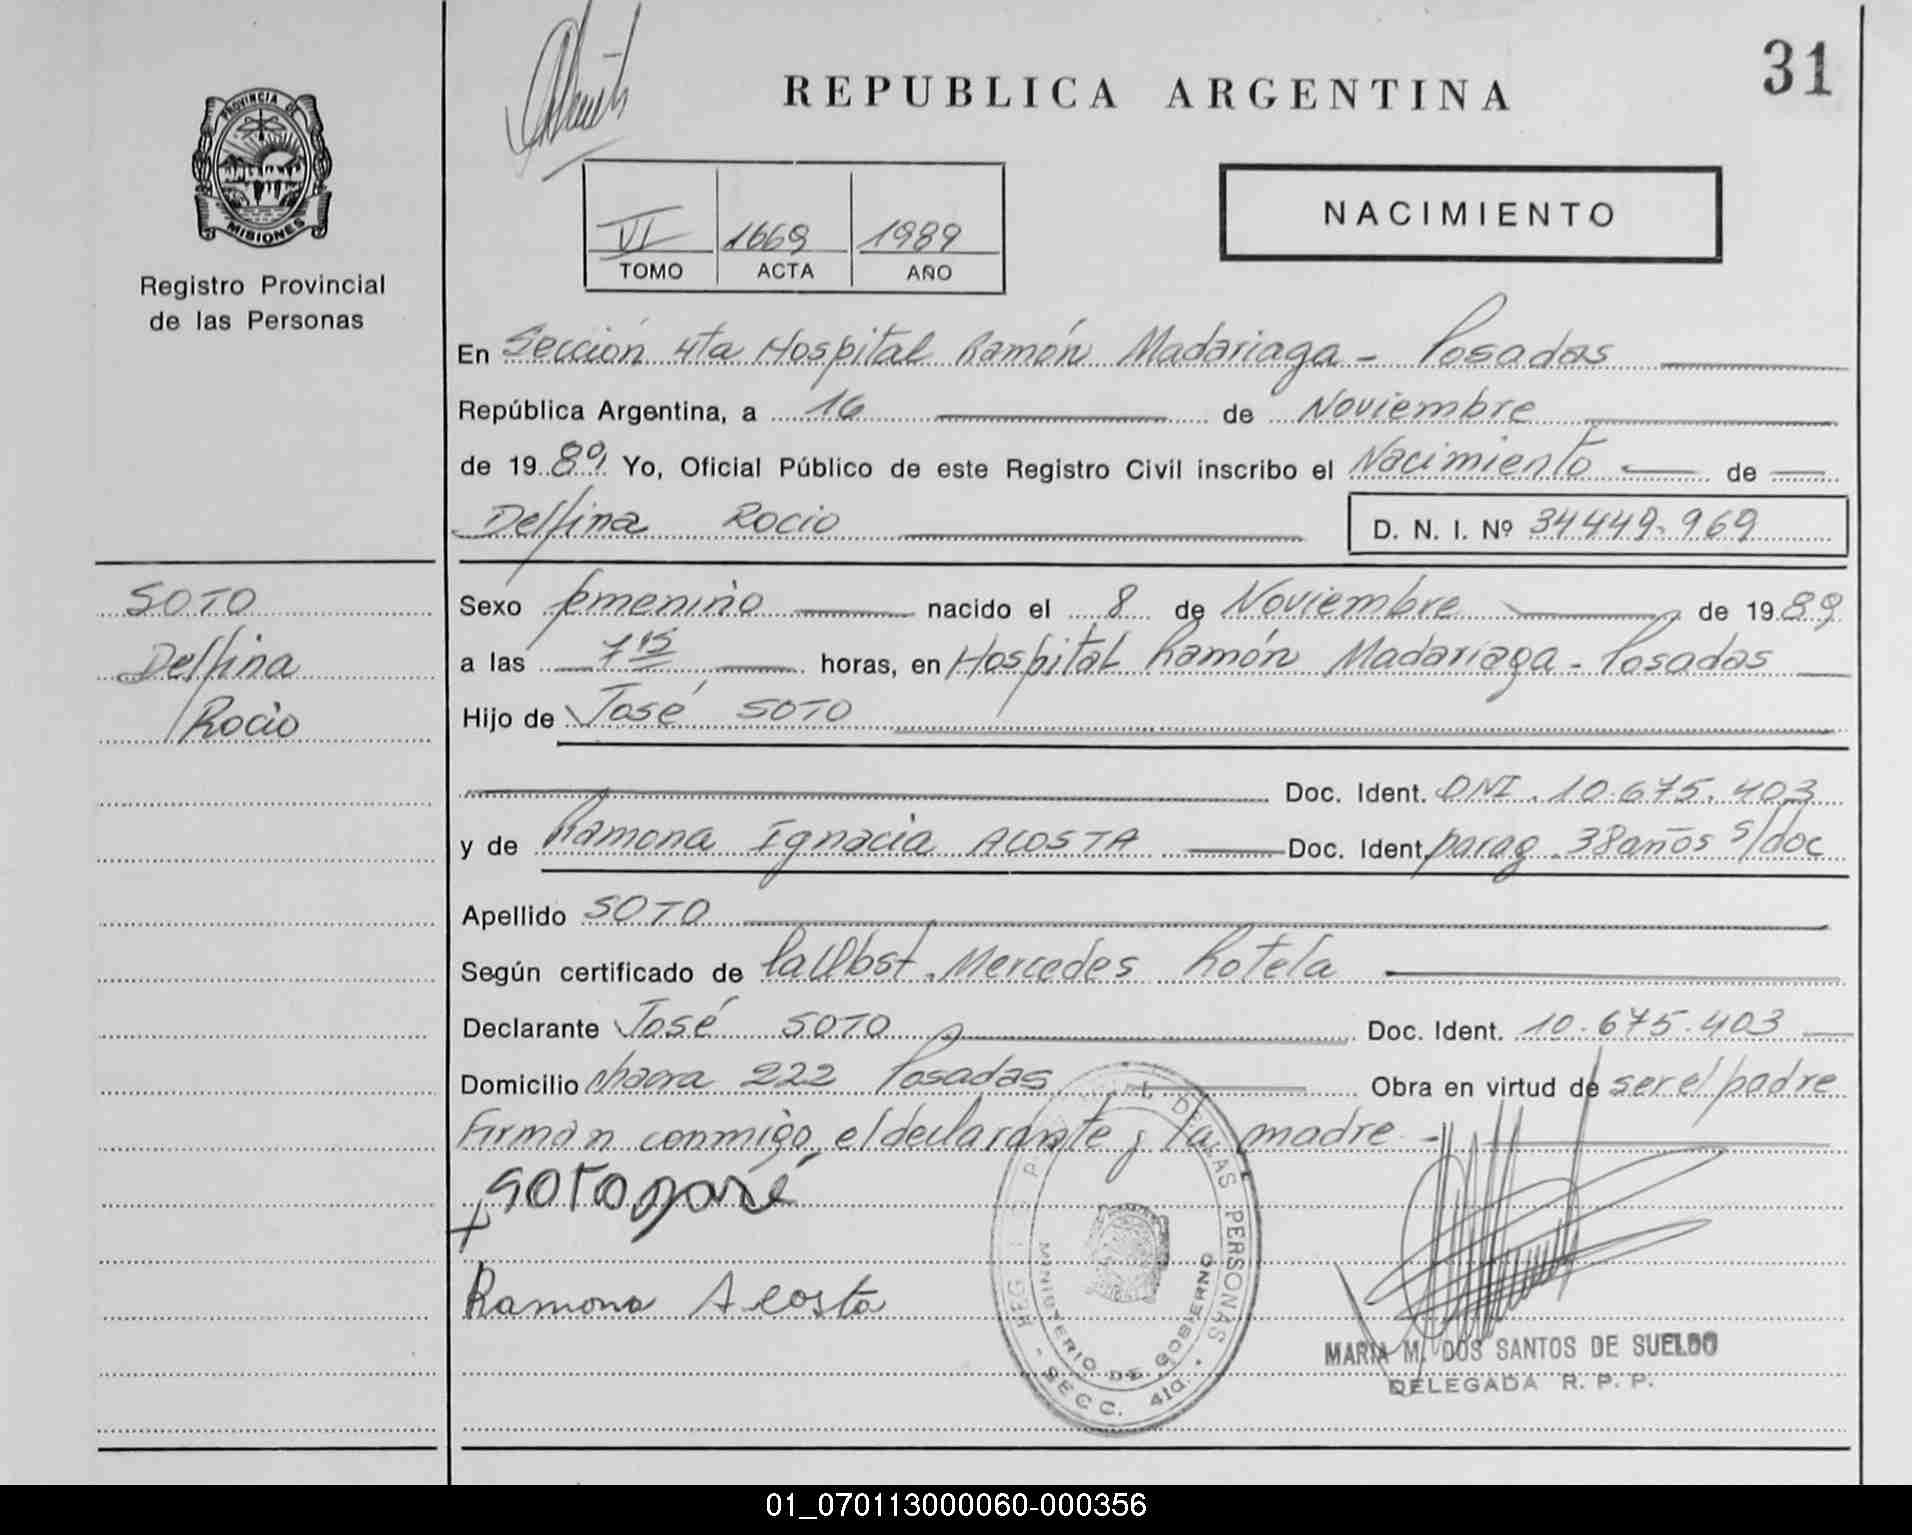 31
REPUBLICA ARGENTINA
PROVINCIA DE
MISIONES
Registro Provincial
de las Personas
NACIMIENTO
VI 1669 1989
TOMO ACTA AÑO
En Sección 4ta Hospital Ramón Madariaga - Posadas
República Argentina, a 16 de Noviembre
de 1989 Yo, Oficial Público de este Registro Civil inscribo el Nacimiento de
Delfina Rocio D. N. I. Nº 34449.969
SOTO
Delfina
Rocio
Sexo femenino nacido el 8 de Noviembre de 1989
a las 7 15 horas, en Hospital Ramón Madariaga - Posadas
Hijo de José SOTO
Doc. Ident. DNI. 10.675.403
y de Ramona Ignacia ACOSTA Doc. Ident. parag. 38 años s/doc
Apellido SOTO
Según certificado de la Obst. Mercedes Rotela
Declarante José SOTO Doc. Ident. 10.675.403
Domicilio chacra 222 Posadas Obra en virtud de ser el padre
Firman conmigo el declarante y la madre -
SOTO José
Ramona Acosta
DE LAS PERSONAS
MINISTERIO DE GOBIERNO
SECC. 4ta.
MARIA M. DOS SANTOS DE SUELDO
DELEGADA R. P. P.
01_070113000060-000356